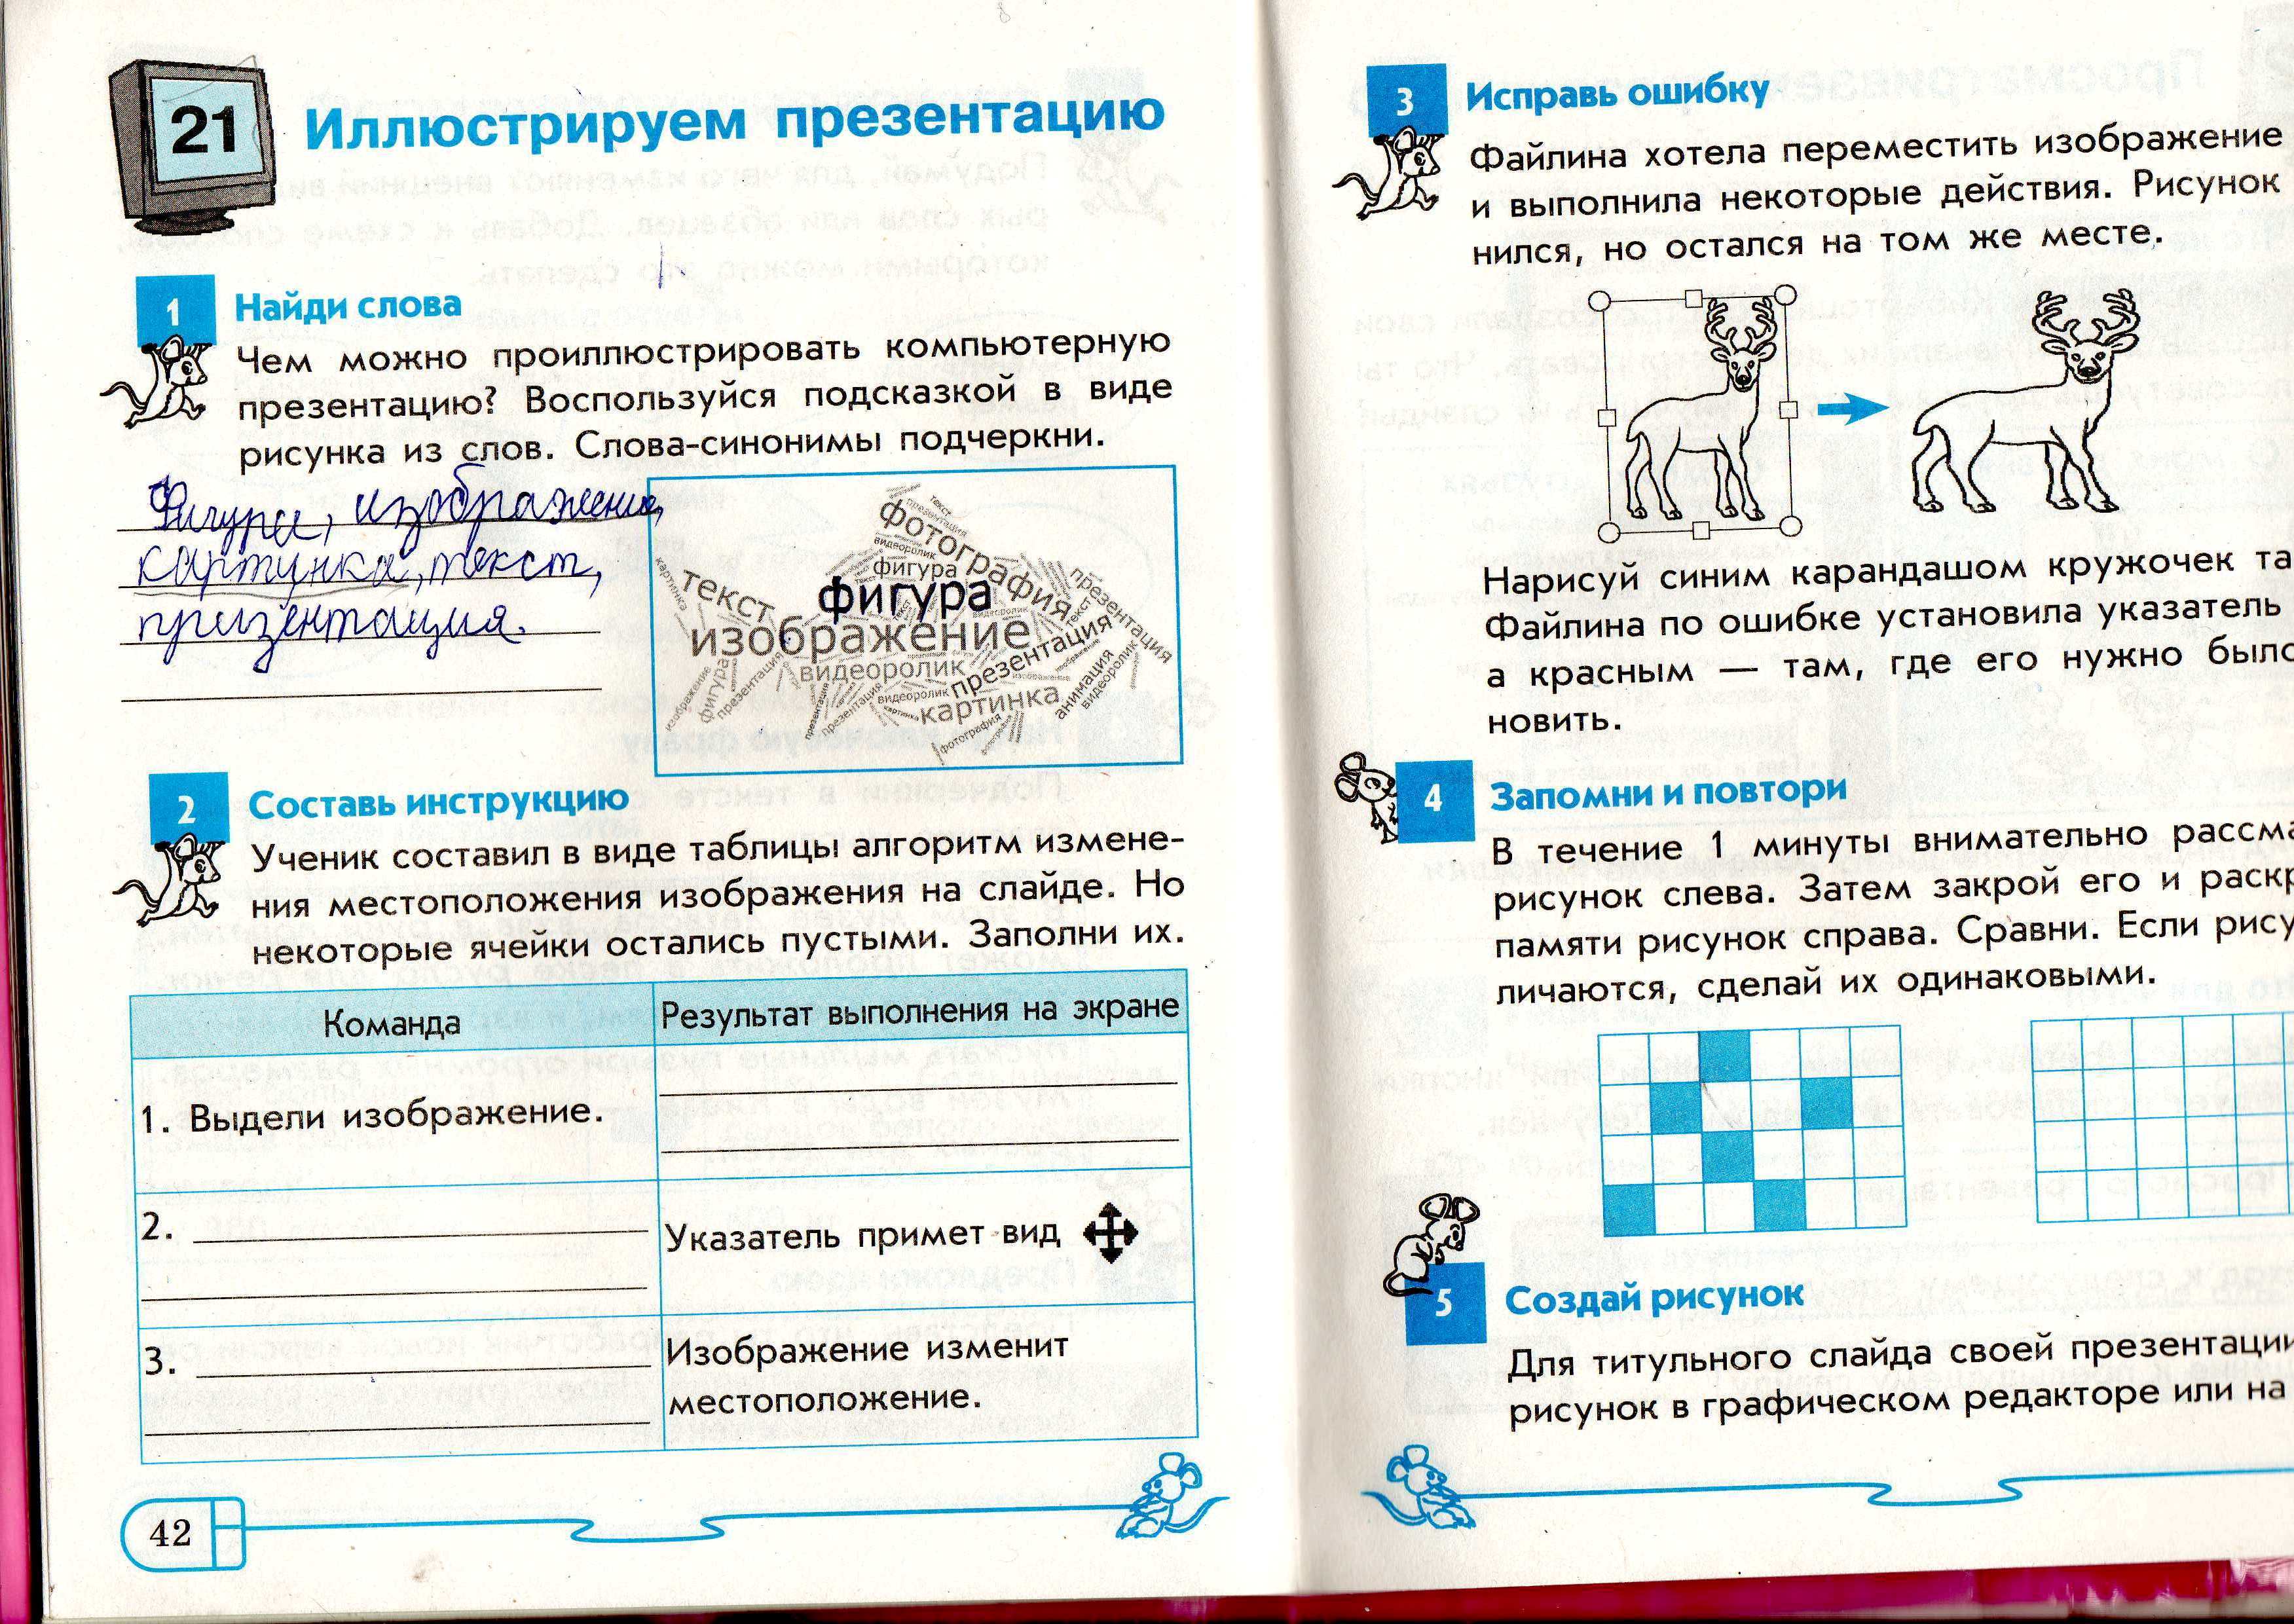 21
Иллюстрируем презентацию
1
Найди слова
Чем можно проиллюстрировать компьютерную
презентацию? Воспользуйся подсказкой в виде
рисунка из слов. Слова-синонимы подчеркни.
Фигура, изображение,
картинка, текст,
призентация.
фотография
презентация
текст
видеоролик
фигура
текст
картинка
фигура
презентация
изображение
видеоролик
презентация
картинка
видеоролик
анимация
видеоролик
изображение
фигура
презентация
презентация
презентация
фотография
2
Составь инструкцию
Ученик составил в виде таблицы алгоритм измене-
ния местоположения изображения на слайде. Но
некоторые ячейки остались пустыми. Заполни их.
Команда
Результат выполнения на экране
1. Выдели изображение.
2.
Указатель примет вид
3.
Изображение изменит
местоположение.
42
3
Исправь ошибку
Файлина хотела переместить изображение
и выполнила некоторые действия. Рисунок
нился, но остался на том же месте.
Нарисуй синим карандашом кружочек та
Файлина по ошибке установила указатель
а красным — там, где его нужно было
новить.
4
Запомни и повтори
В течение 1 минуты внимательно рассма
рисунок слева. Затем закрой его и раскр
памяти рисунок справа. Сравни. Если рису
личаются, сделай их одинаковыми.
5
Создай рисунок
Для титульного слайда своей презентации
рисунок в графическом редакторе или на